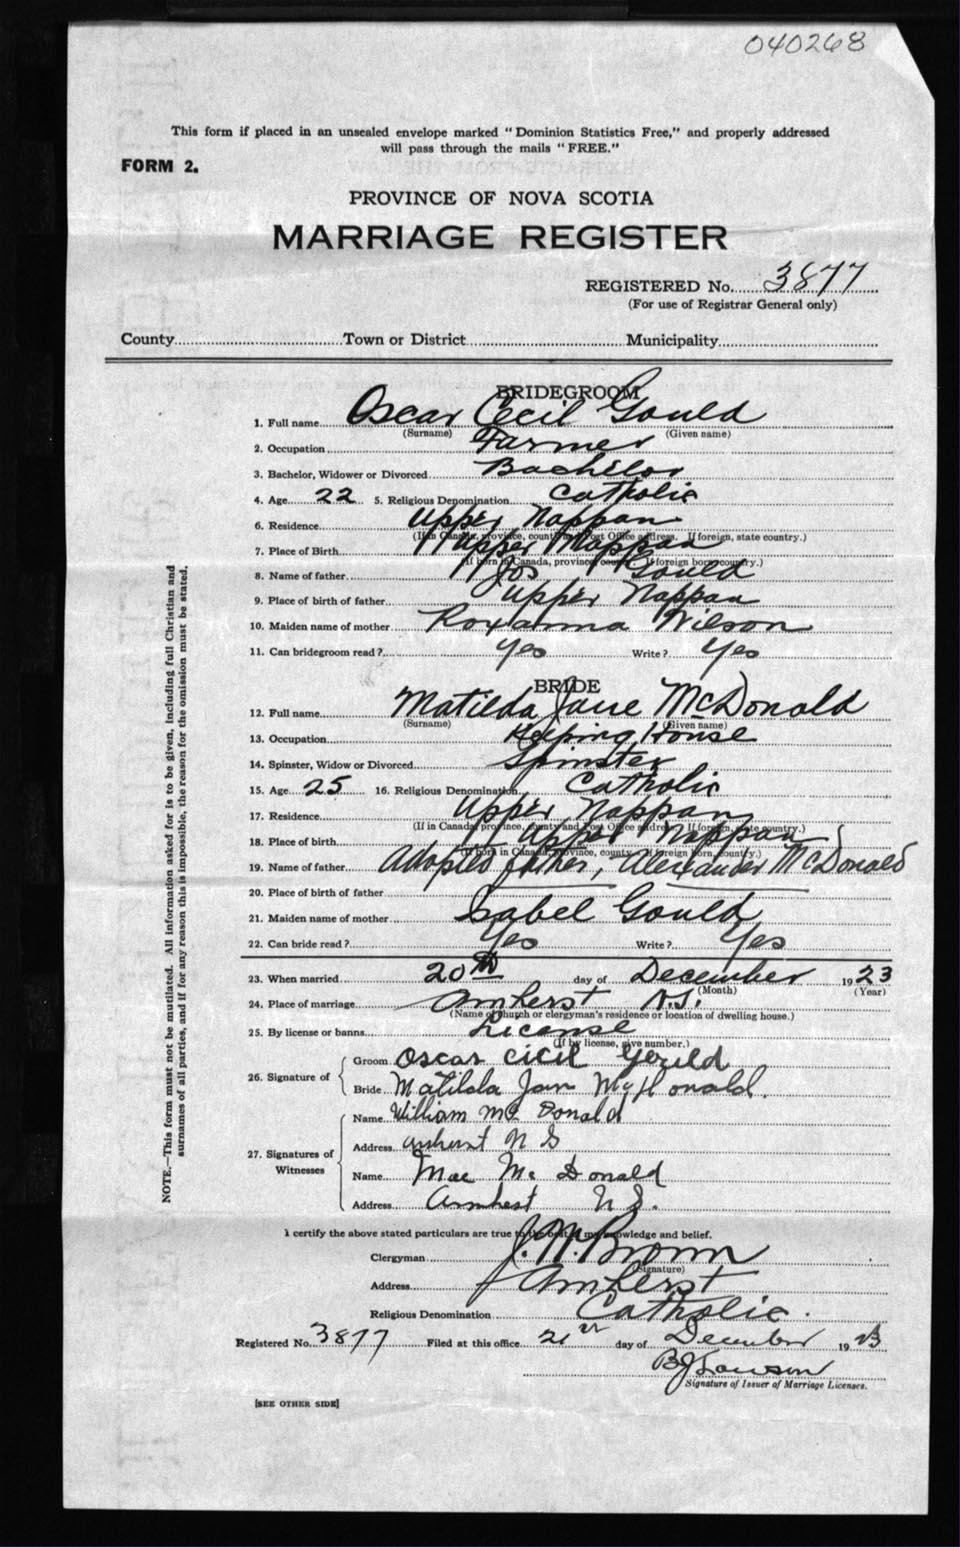 040268
This form if placed in an unsealed envelope marked "Dominion Statistics Free," and properly addressed
will pass through the mails "FREE."
FORM 2.
PROVINCE OF NOVA SCOTIA
MARRIAGE REGISTER
REGISTERED No. 3877
(For use of Registrar General only)
County Town or District Municipality
BRIDEGROOM
1. Full name Oscar Cecil Gould
(Surname) (Given name)
2. Occupation Farmer
3. Bachelor, Widower or Divorced Bachelor
4. Age 22 5. Religious Denomination Catholic
6. Residence Upper Nappan
(If in Canada, province, county and Post Office address. If foreign, state country.)
7. Place of Birth Upper Nappan
(If born in Canada, province, county. If foreign born, country.)
8. Name of father Jos Gould
9. Place of birth of father Upper Nappan
10. Maiden name of mother Roxanna Wilson
11. Can bridegroom read? Yes Write? Yes
BRIDE
12. Full name Matilda Jane McDonald
(Surname) (Given name)
13. Occupation Keeping House
14. Spinster, Widow or Divorced Spinster
15. Age 25 16. Religious Denomination Catholic
17. Residence Upper Nappan
(If in Canada, province, county and Post Office address. If foreign, state country.)
18. Place of birth Upper Nappan
(If born in Canada, province, county. If foreign born, country.)
19. Name of father Adopted father, Alexander McDonald
20. Place of birth of father
21. Maiden name of mother Isabel Gould
22. Can bride read? Yes Write? Yes
23. When married 20th day of December 1923
(Month) (Year)
24. Place of marriage Amherst N.S.
(Name of church or clergyman's residence or location of dwelling house.)
25. By license or banns License
(If by license, give number.)
26. Signature of
Groom Oscar Cicil Gould
Bride Matilda Jan
27. Signatures of Witnesses
Name William Mc Donald
Address Amherst N S
Name Mae Mc Donald
Address Amhest N.S.
I certify the above stated particulars are true to the best of my knowledge and belief.
Clergyman J. M. Brown
(Signature)
Address Amherst
Religious Denomination Catholic.
Registered No. 3877 Filed at this office 21st day of December 1923
B J Lawson
Signature of Issuer of Marriage Licenses.
[SEE OTHER SIDE]
NOTE.—This form must not be mutilated. All information asked for is to be given, including full Christian and
surnames of all parties, and if for any reason this is impossible, the reason for the omission must be stated.